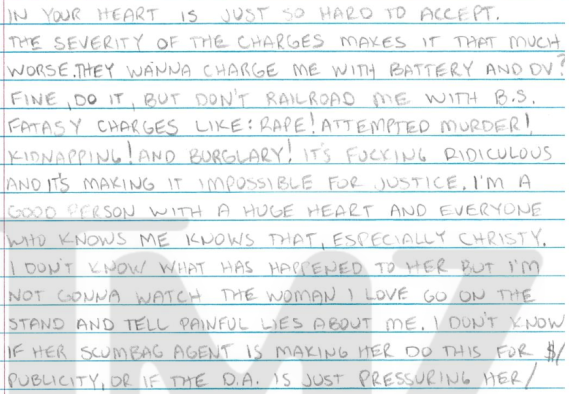 IN YOUR HEART IS JUST SO HARD TO ACCEPT.
THE SEVERITY OF THE CHARGES MAKES IT THAT MUCH
WORSE. THEY WANNA CHARGE ME WITH BATTERY AND DV?
FINE, DO IT, BUT DON'T RAILROAD ME WITH B.S.
FATASY CHARGES LIKE: RAPE! ATTEMPTED MURDER!
KIDNAPPING! AND BURGLARY! IT'S FUCKING RIDICULOUS
AND IT'S MAKING IT IMPOSSIBLE FOR JUSTICE. I'M A
GOOD PERSON WITH A HUGE HEART AND EVERYONE
WHO KNOWS ME KNOWS THAT, ESPECIALLY CHRISTY.
I DON'T KNOW WHAT HAS HAPPENED TO HER BUT I'M
NOT GONNA WATCH THE WOMAN I LOVE GO ON THE
STAND AND TELL PAINFUL LIES ABOUT ME. I DON'T KNOW
IF HER SCUMBAG AGENT IS MAKING HER DO THIS FOR $/
PUBLICITY, OR IF THE D.A. IS JUST PRESSURING HER/